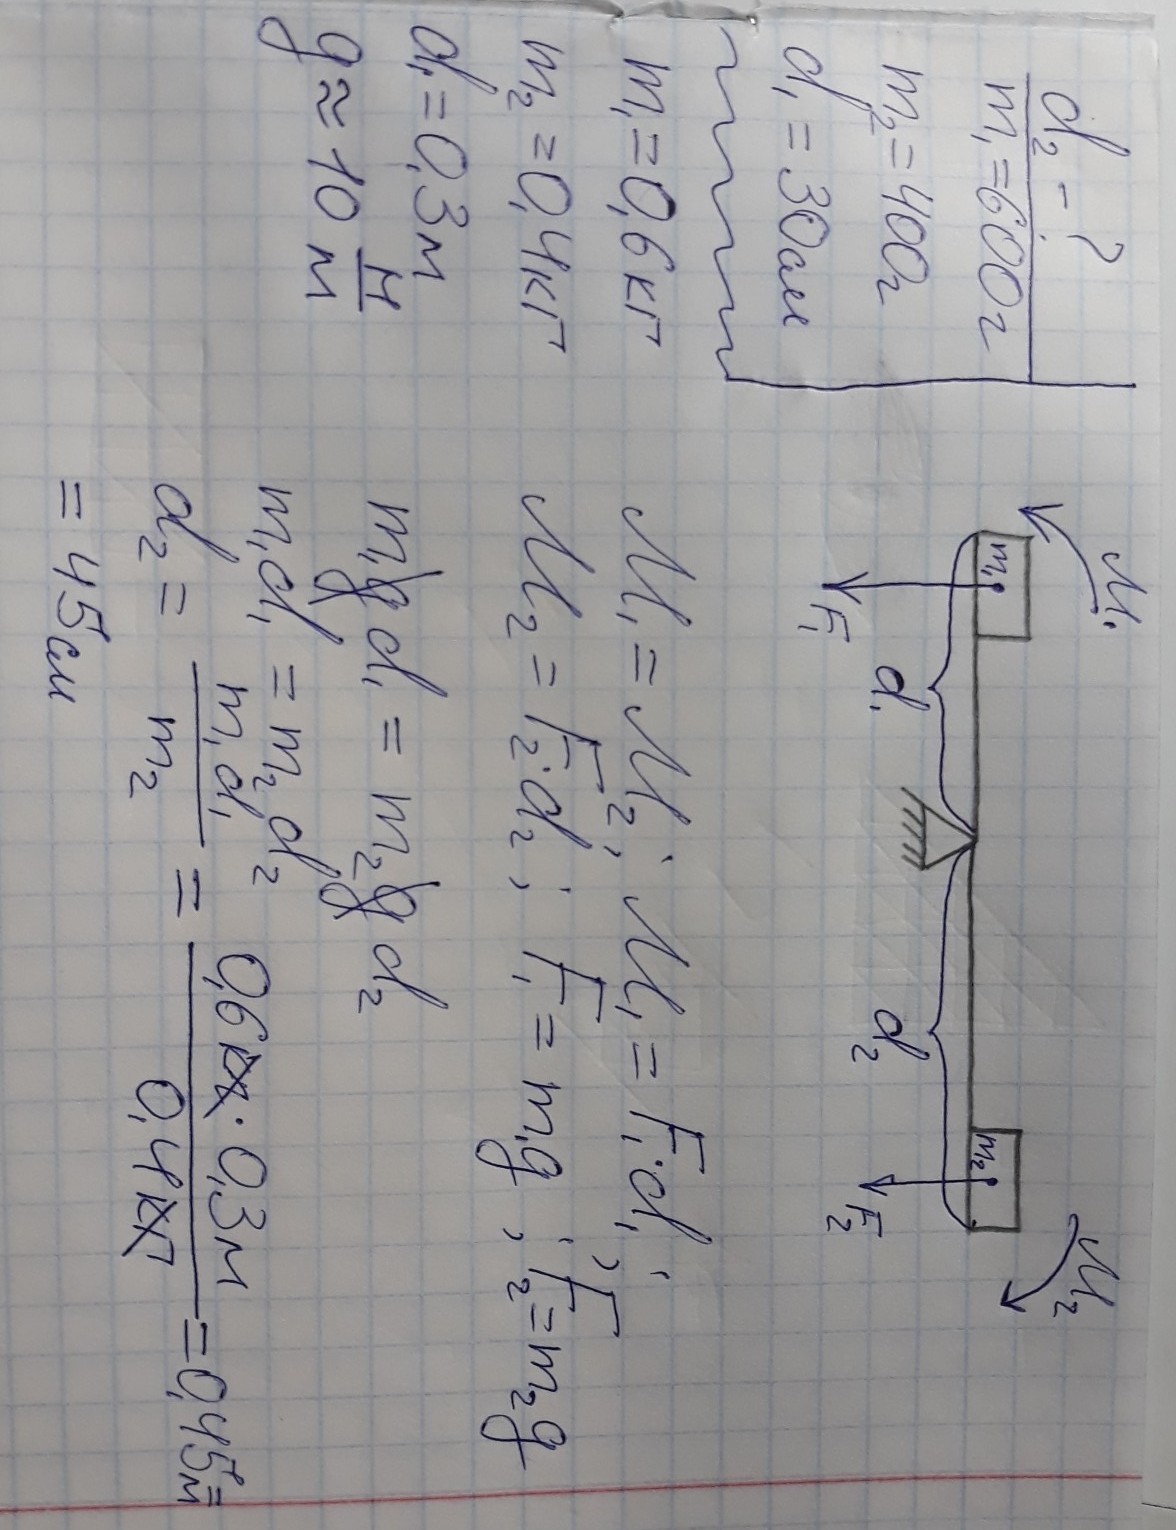 d₂ - ?
m₁ = 600г
m₂ = 400г
d₁ = 30см
m₁ = 0,6 кг
m₂ = 0,4 кг
d₁ = 0,3 м
g ≈ 10 Н/м
M₁
M₂
m₁
m₂
d₁
d₂
F₁
F₂
M₁ = M₂; M₁ = F₁·d₁;
M₂ = F₂·d₂; F₁ = m₁g; F₂ = m₂g
m₁g d₁ = m₂g d₂
m₁d₁ = m₂d₂
d₂ = m₁d₁/m₂ = 0,6кг · 0,3м/0,4кг = 0,45м =
= 45см